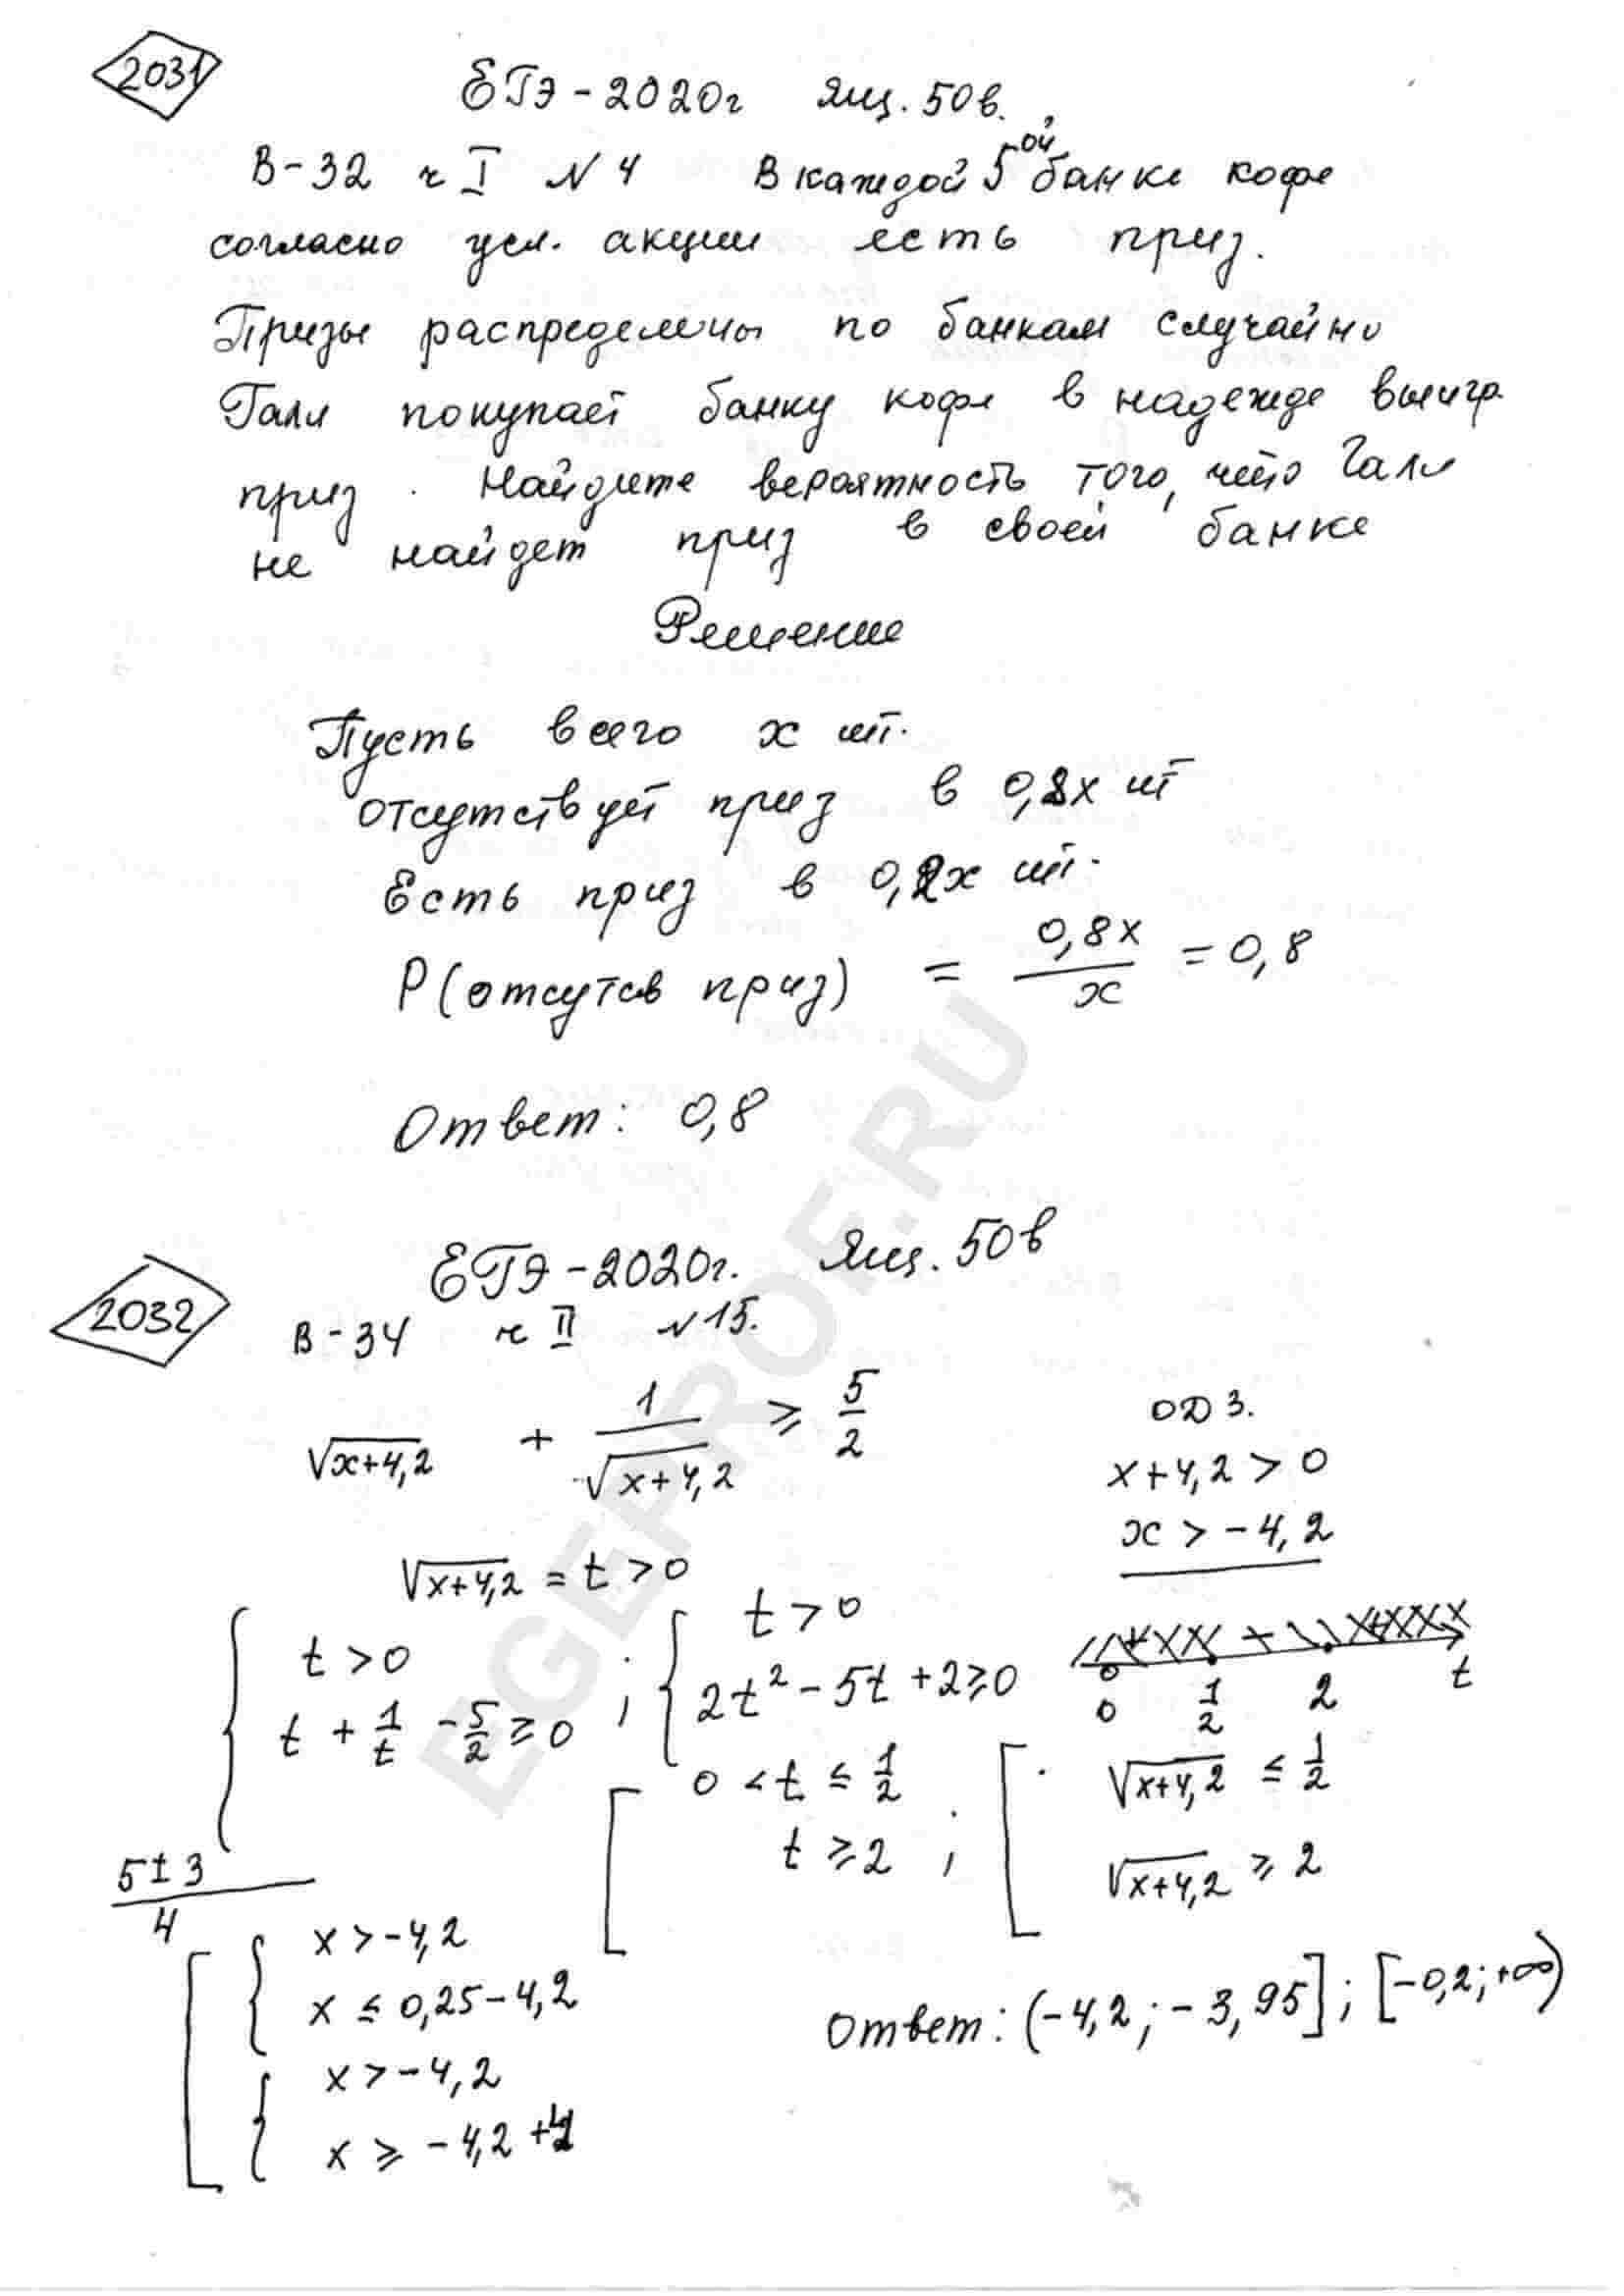 2031
ЕГЭ-2020г Ящ. 50в.
В-32 ч I №4 В каждой 5ой банке кофе
согласно усл. акции есть приз.
Призы распределены по банкам случайно
Галя покупает банку кофе в надежде выигр.
приз. Найдите вероятность того, что Галя
не найдет приз в своей банке
Решение
Пусть всего x шт.
отсутствует приз в 0,8x шт
Есть приз в 0,2x шт.
P(отсутсв приз) = 0,8x/x = 0,8
Ответ: 0,8
2032
ЕГЭ-2020г. Ящ. 50в
В-34 ч II №15.
√x+4,2 + 1/√x+4,2 ≥ 5/2
ОДЗ.
x+4,2 > 0
x > -4,2
√x+4,2 = t > 0
{ t > 0
t + 1/t - 5/2 ≥ 0 ;
{ t > 0
2t² - 5t + 2 ≥ 0
+ - +
0 1/2 2 t
5±3/4
[ 0 < t ≤ 1/2
t ≥ 2 ;
[ √x+4,2 ≤ 1/2
√x+4,2 ≥ 2
[ { x > -4,2
x ≤ 0,25-4,2
{ x > -4,2
x ≥ -4,2+4
Ответ: (-4,2; -3,95]; [-0,2; +∞)
EGEPROF.RU